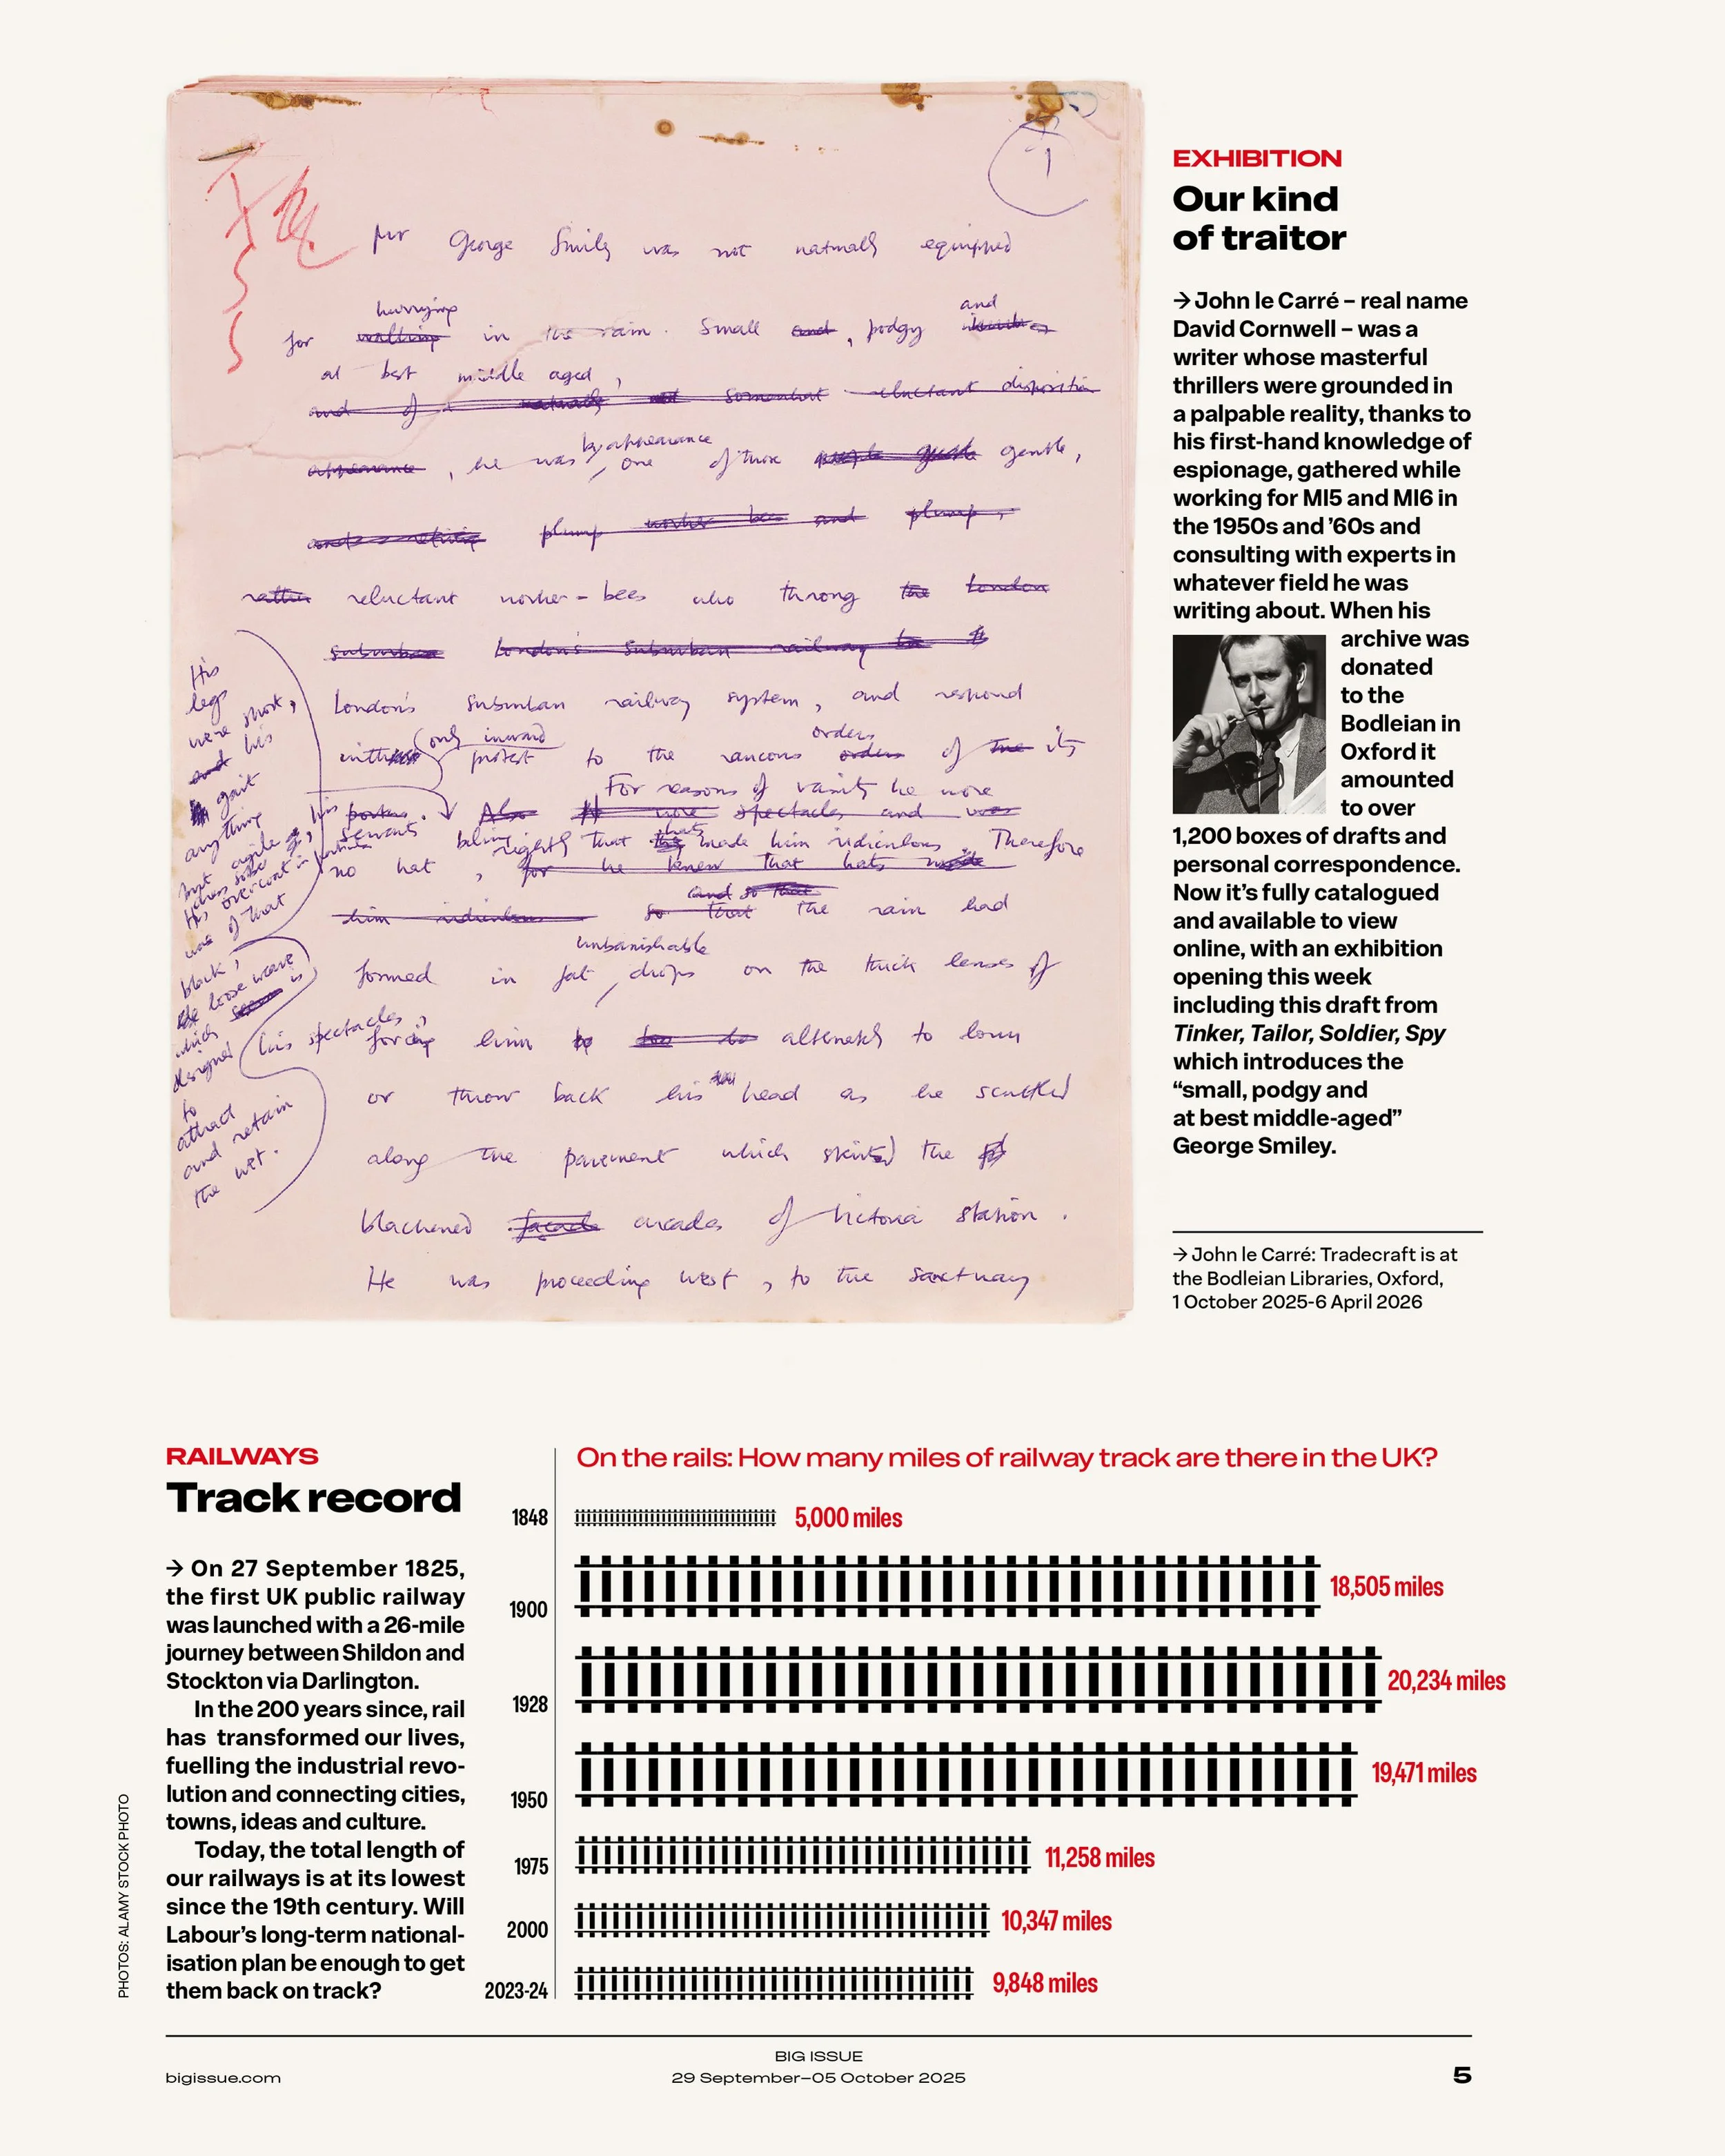 1
Mr George Smiley was not naturally equipped
hurrying and
for walking in the rain. Small and, podgy
at best middle aged,
and of a naturally somewhat reluctant disposition
by appearance
appearance, he was, one of those gentle,
plump worker bees and plump,
rather reluctant worker-bees who throng the London
suburban London's suburban railway
London's suburban railway system, and respond
orders
with only inward protest to the raucous orders of the its
For reasons of vanity he wore
his porters. Also wore spectacles and was
servants
rightly that hats made him ridiculous. Therefore
no hat, for he knew that hats made
and so that
him ridiculous so that the rain had
unbanishable
formed in fat, drops on the thick lenses of
his spectacles,
forcing him to alternately to lower
or throw back his head as he scuttled
along the pavement which skirted the
blackened facade arcades of Victoria station.
He was proceeding west, to the sanctuary
His
legs
were short,
and his
gait
anything
but agile
His overcoat
was of that
black,
loose weave
which is
designed
to
attract
and retain
the wet.
EXHIBITION
Our kind
of traitor
→ John le Carré – real name
David Cornwell – was a
writer whose masterful
thrillers were grounded in
a palpable reality, thanks to
his first-hand knowledge of
espionage, gathered while
working for MI5 and MI6 in
the 1950s and ’60s and
consulting with experts in
whatever field he was
writing about. When his
archive was
donated
to the
Bodleian in
Oxford it
amounted
to over
1,200 boxes of drafts and
personal correspondence.
Now it’s fully catalogued
and available to view
online, with an exhibition
opening this week
including this draft from
Tinker, Tailor, Soldier, Spy
which introduces the
“small, podgy and
at best middle-aged”
George Smiley.
→ John le Carré: Tradecraft is at
the Bodleian Libraries, Oxford,
1 October 2025-6 April 2026
RAILWAYS
Track record
→ On 27 September 1825,
the first UK public railway
was launched with a 26-mile
journey between Shildon and
Stockton via Darlington.
In the 200 years since, rail
has transformed our lives,
fuelling the industrial revo-
lution and connecting cities,
towns, ideas and culture.
Today, the total length of
our railways is at its lowest
since the 19th century. Will
Labour’s long-term national-
isation plan be enough to get
them back on track?
On the rails: How many miles of railway track are there in the UK?
1848 5,000 miles
1900 18,505 miles
1928 20,234 miles
1950 19,471 miles
1975 11,258 miles
2000 10,347 miles
2023-24 9,848 miles
PHOTOS: ALAMY STOCK PHOTO
bigissue.com
BIG ISSUE
29 September–05 October 2025
5